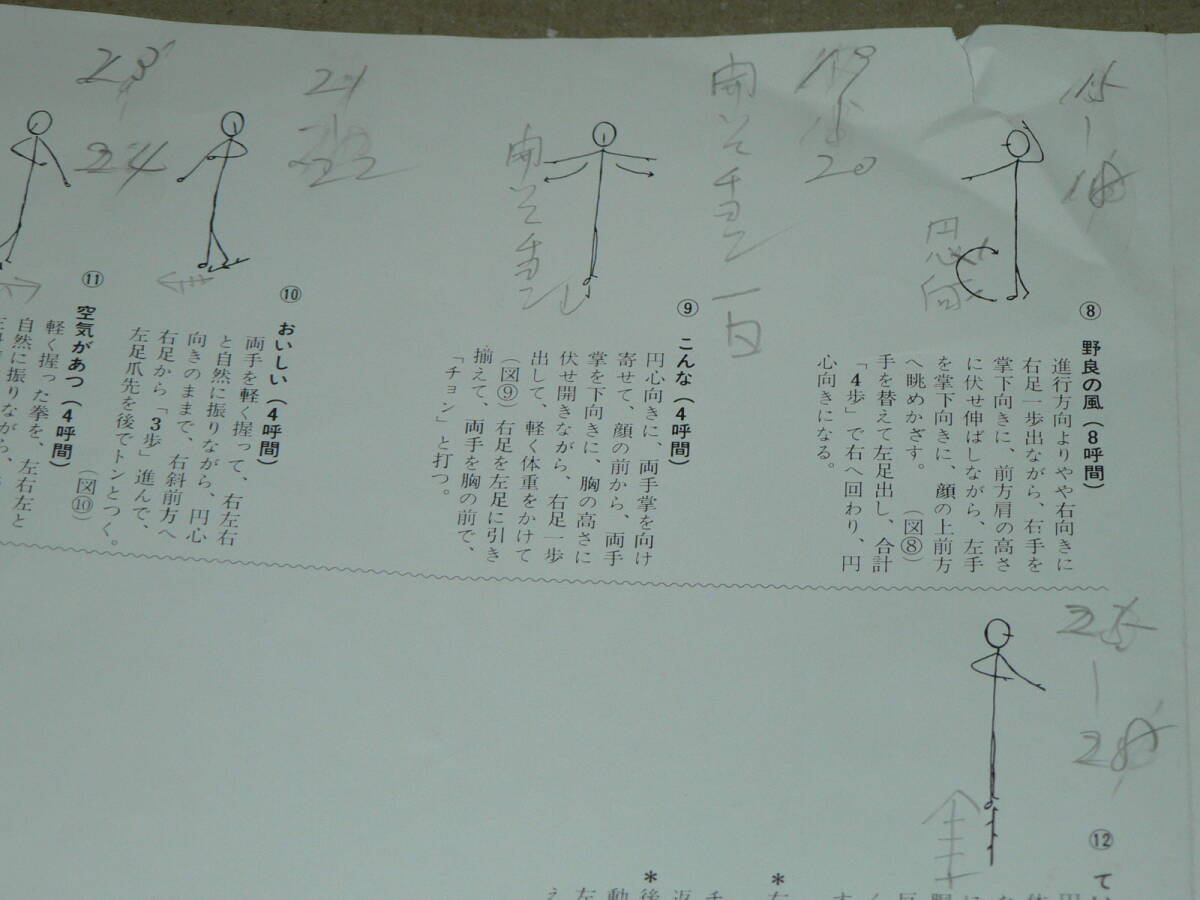 15
18
⑧ 野良の風（8呼間）
進行方向よりやや右向きに
右足一歩出ながら、右手を
掌下向きに、前方肩の高さ
に伏せ伸ばしながら、左手
を掌下向きに、顔の上前方
へ眺めかざす。（図⑧）
手を替えて左足出し、合計
「4歩」で右へ回わり、円
心向きになる。
円心向
19
20
⑨ こんな（4呼間）
円心向きに、両手掌を向け
寄せて、顔の前から、両手
掌を下向きに、胸の高さに
伏せ開きながら、右足一歩
出して、軽く体重をかけて
（図⑨）右足を左足に引き
揃えて、両手を胸の前で、
「チョン」と打つ。
21
22
⑩ おいしい（4呼間）
両手を軽く握って、右左右
と自然に振りながら、円心
向きのままで、右斜前方へ
右足から「3歩」進んで、
左足爪先を後でトンとつく。
（図⑩）
23
24
⑪ 空気があつ（4呼間）
軽く握った拳を、左右左と
自然に振りながら、
25
28
⑫ て